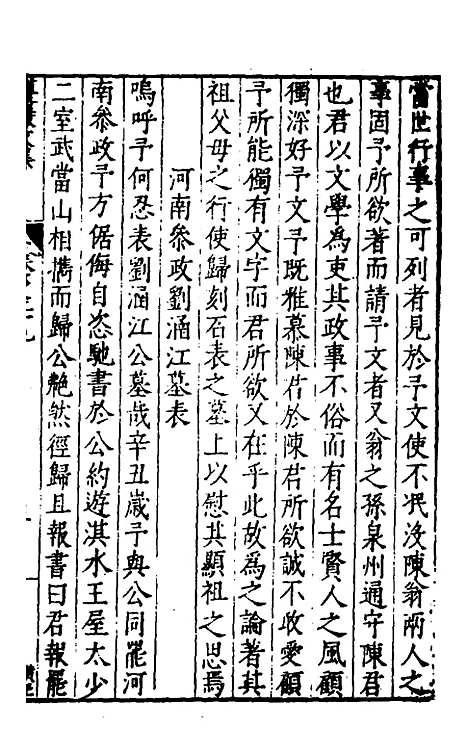 當世行事之可列者見於予文使不泯沒陳翁兩人之
事固予所欲著而請予文者又翁之孫泉州通守陳君
也君以文學為吏其政事不俗而有名士賢人之風顧
獨深好予文予既雅慕陳君於陳君所欲誠不敢愛顧
予所能獨有文字而君所欲又在乎此故為之論著其
祖父母之行使歸刻石表之墓上以慰其顯祖之思焉
河南參政劉涵江墓表
嗚呼予何忍表劉涵江公墓哉辛丑歲予與公同罷河
南參政予方倨侮自恣馳書於公約遊淇水王屋太少
二室武當山相攜而歸公艴然徑歸且報書曰君報罷